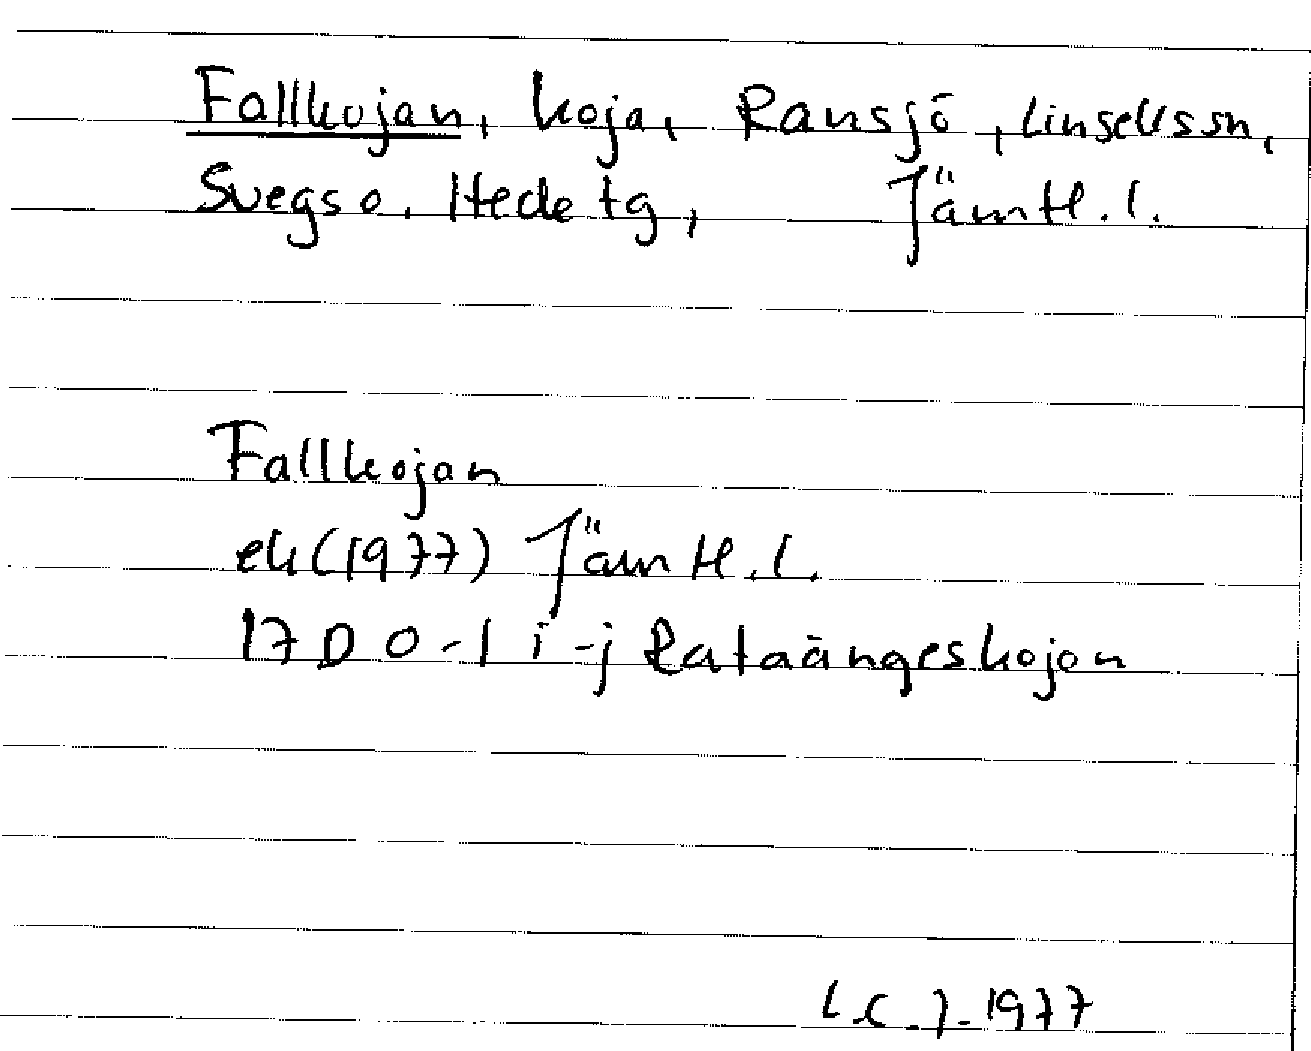 Fallkojan, koja, Ransjö, Linsells sn,
Svegs o. Hede tg, Jämtl. l.
Fallkojan
ek (1977) Jämtl. l.
17 D 0-1 i-j Rataängeskojan
L.C.J. 1977